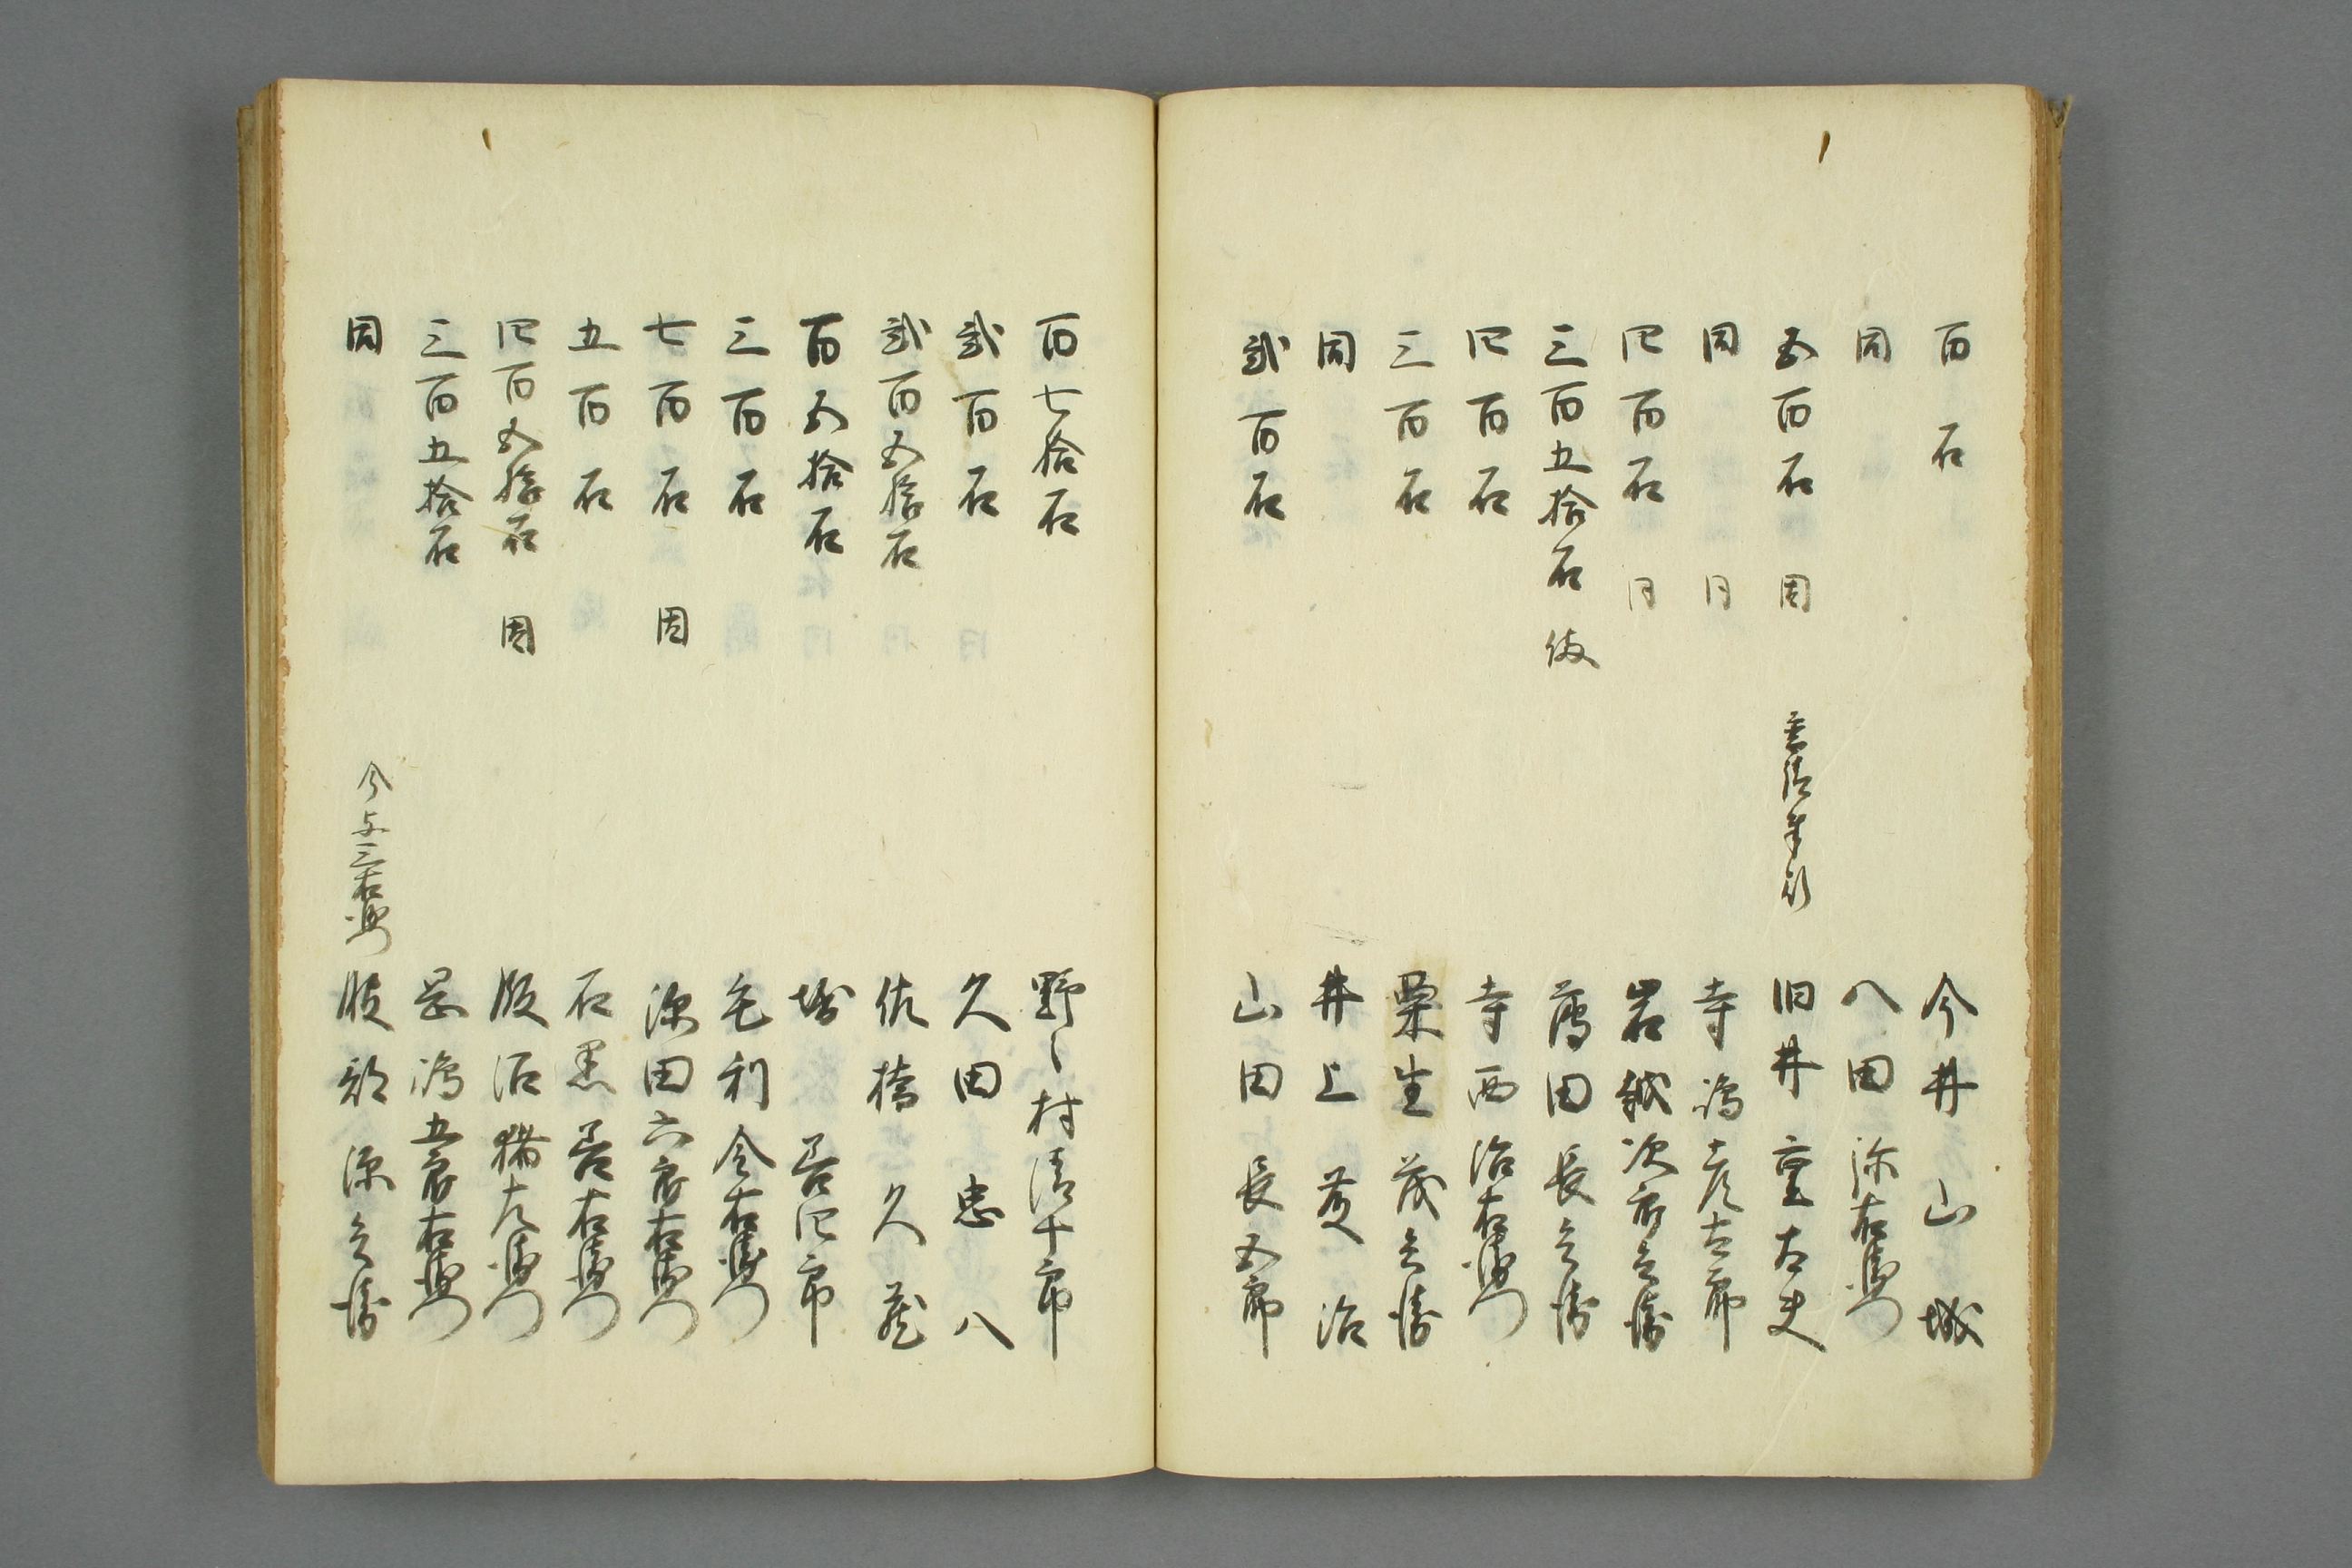 百石 今井山城
同 八田弥右衛門
五百石 同 旧井重太夫
同 同 寺嶋彦太郎
四百石 同 岩越次郎兵衛
三百五拾石 後 薄田長兵衛
四百石 寺西治右衛門
三百石 栗生茂兵衛
同 井上 治
弐百石 山田長五郎
百七拾石 野々村清十郎
弐百石 久田忠八
弐百五拾石 佐橋久蔵
百五拾石 堀善四郎
三百石 毛利金右衛門
七百石 同 深田六郎右衛門
五百石 石黒善右衛門
四百五拾石 同 飯沼猪左衛門
三百五拾石 長嶋五郎右衛門
同 今与三右衛門 服部源兵衛